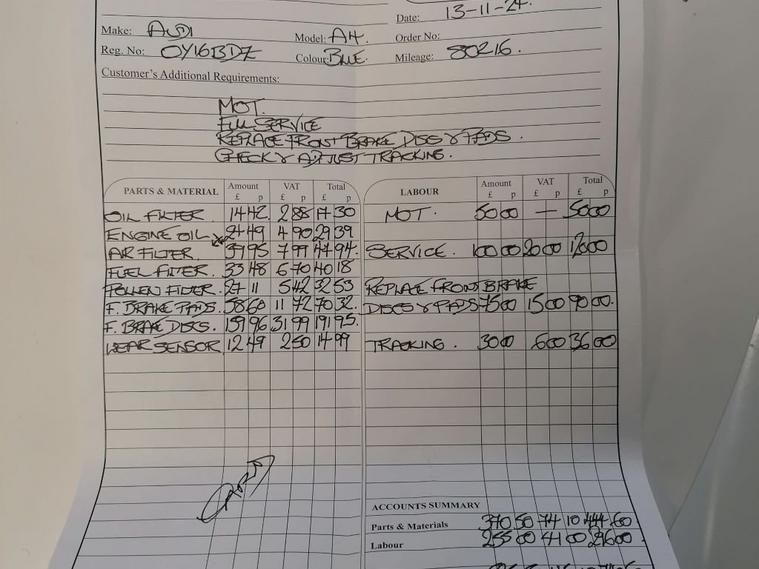 Date: 13-11-24.
Make: AUDI Model: A4 Order No:
Reg. No: OY16BDZ Colour: BLUE Mileage: 80216.
Customer's Additional Requirements:
MOT.
FULL SERVICE
REPLACE FRONT BRAKE DISCS & PADS.
CHECK & ADJUST TRACKING.
PARTS & MATERIAL Amount £ p VAT £ p Total £ p
OIL FILTER. 14 42. 2 88 17 30
ENGINE OIL 24 49 4 90 29 39
AIR FILTER. 39 95 7 99 47 94.
FUEL FILTER. 33 48 6 70 40 18
POLLEN FILTER. 27 11 5 42 32 53
F. BRAKE PADS. 58 60 11 72 70 32.
F. BRAKE DISCS. 159 96 31 99 191 95.
WEAR SENSOR 12 49 2 50 14 99
LABOUR Amount £ p VAT £ p Total £ p
MOT. 50 00 — 50 00
SERVICE. 100 00 20 00 120 00
REPLACE FRONT BRAKE
DISCS & PADS 75 00 15 00 90 00.
TRACKING. 30 00 6 00 36 00
ACCOUNTS SUMMARY
Parts & Materials 370 50 74 10 444 60
Labour 255 00 41 00 296 00